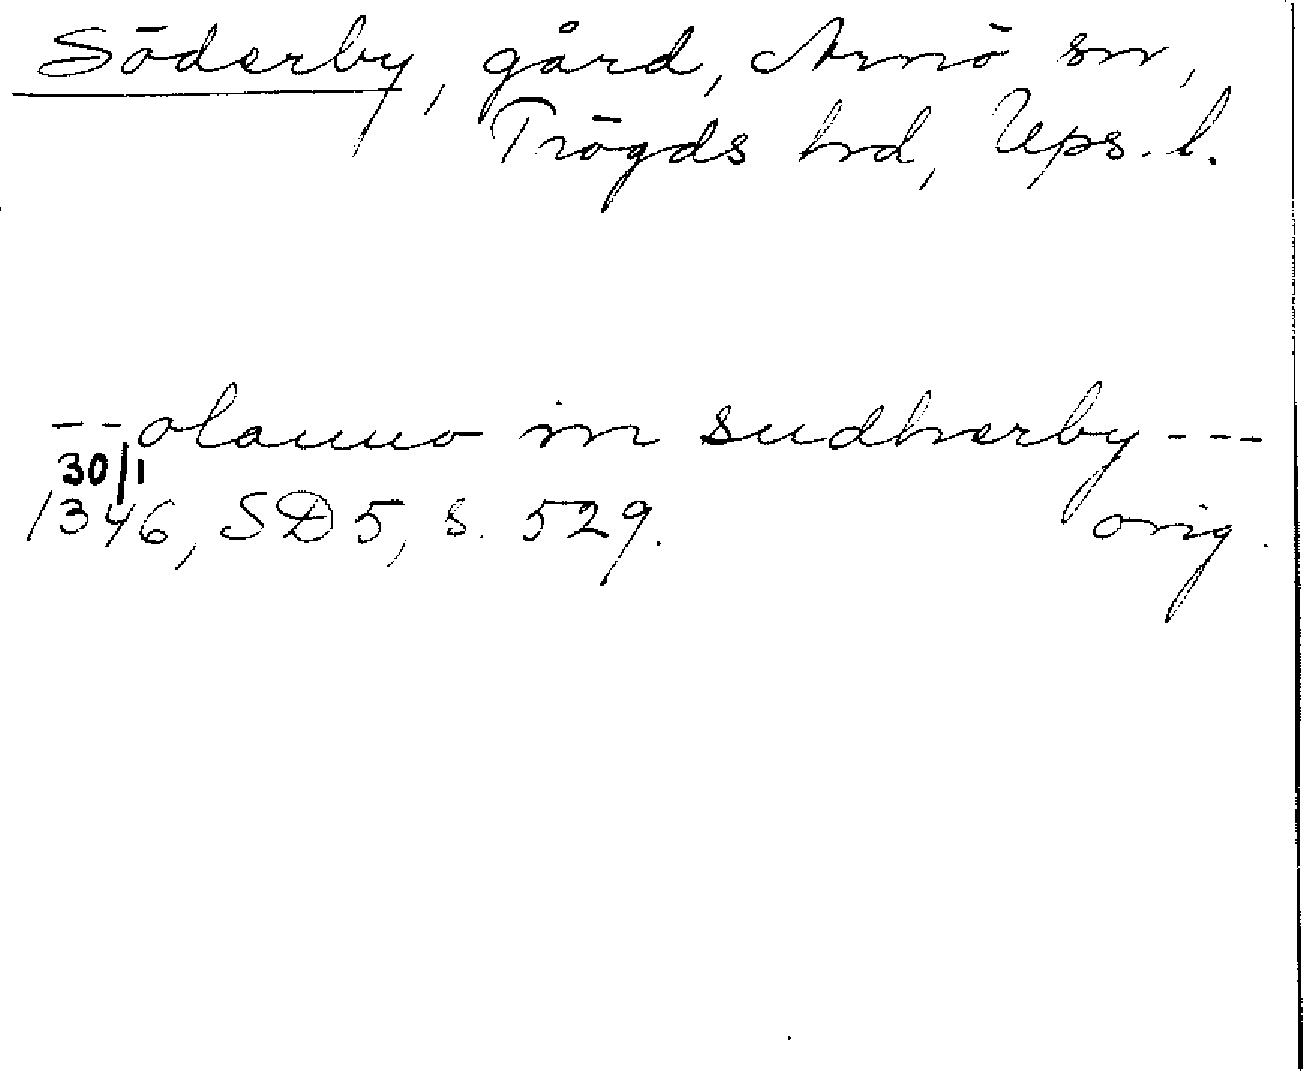 Söderby, gård, Arnö sn,
Trögds hrd, Ups. l.
-- olauuo in sudherby ---
30/1
1346, SD 5, s. 529. orig.